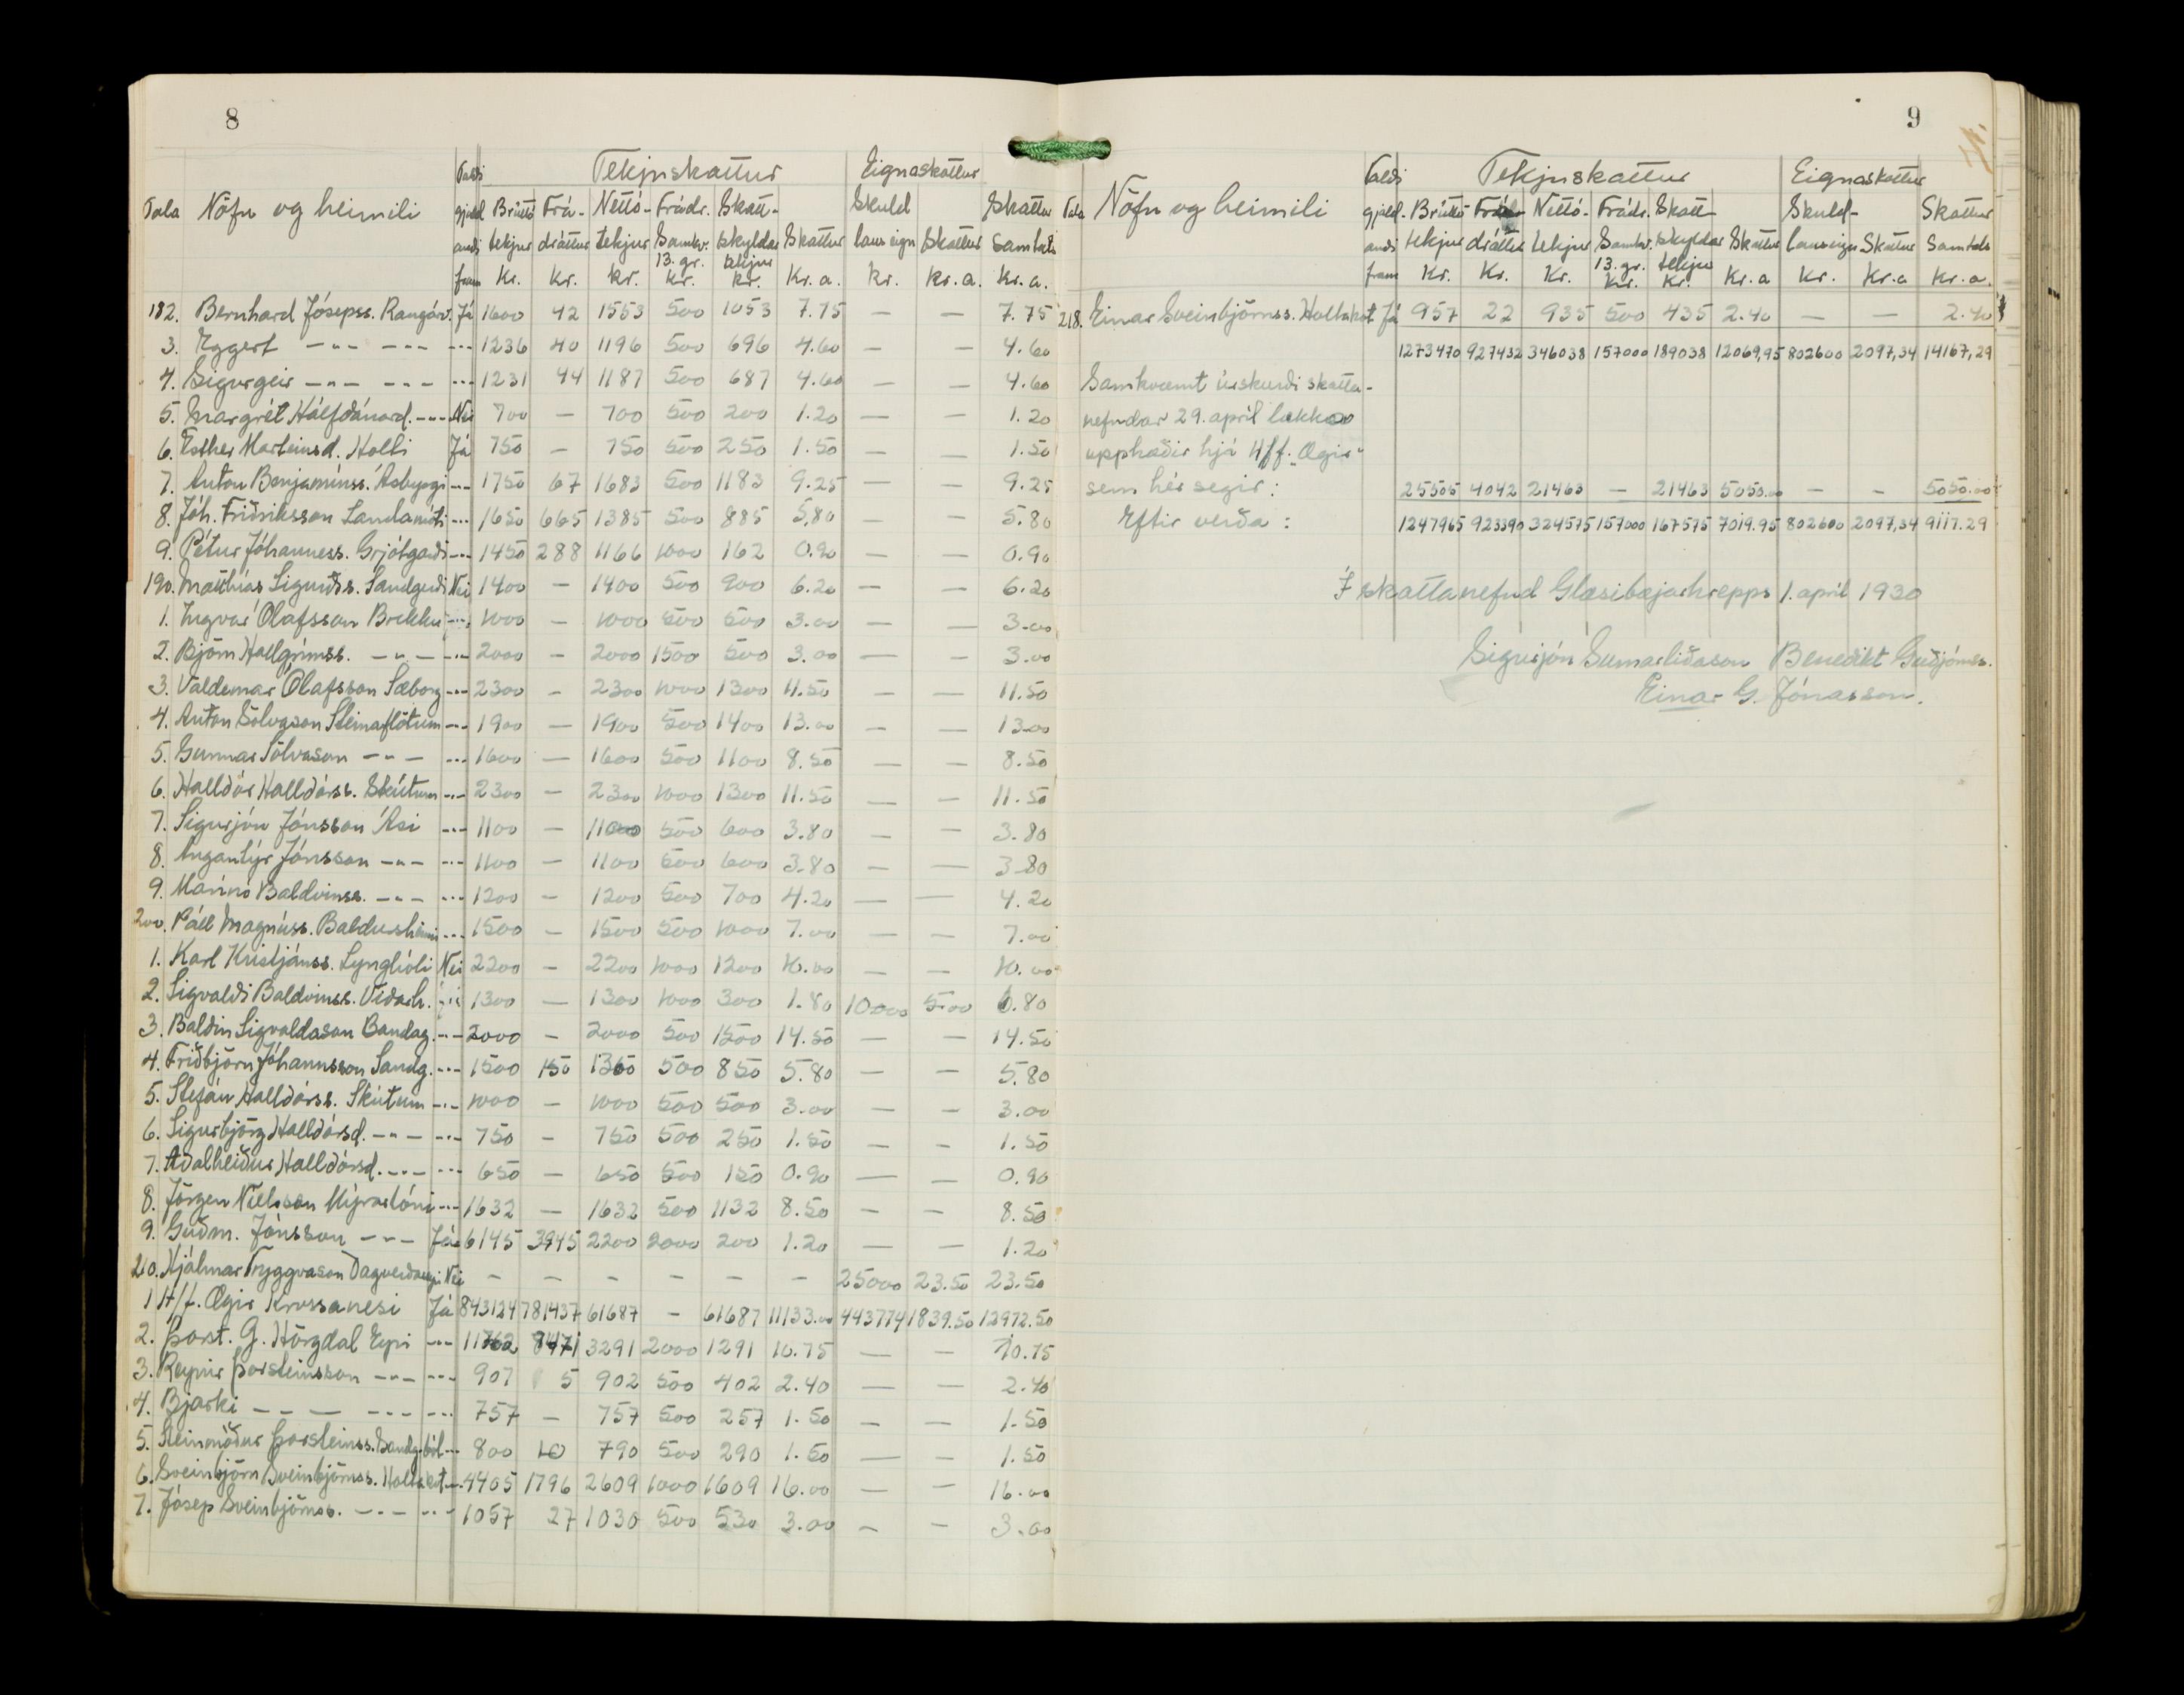 8
Taldi Tekjuskattur Eignaskattur
Tala Nöfn og heimili gjald Brúttó Frá- Nettó- Frádr. Skatt- Skuld Skattur
andi tekjur dráttur tekjur Samkv. skyldar Skattur laus eign Skattur samtals
13. gr. tekjur
fram Kr. Kr. Kr. Kr. Kr. Kr. a. Kr. Kr. a. Kr. a.
182. Bernhard Jósepss. Rangárv. Já 1600 42 1553 500 1053 7.75 — — 7.75
3. Eggert -"- -"- -"- 1236 40 1196 500 696 4.60 — — 4.60
4. Sigurgeir -"- -"- -"- 1231 44 1187 500 687 4.60 — — 4.60
5. Margrét Hálfdánard. -"- Nei 700 — 700 500 200 1.20 — — 1.20
6. Esther Marteinsd. Holti Já 750 — 750 500 250 1.50 — — 1.50
7. Anton Benjamínss. Ásbyrgi -"- 1750 67 1683 500 1183 9.25 — — 9.25
8. Jóh. Friðriksson Landamóti -"- 1650 665 1385 500 885 5.80 — — 5.80
9. Pétur Jóhanness. Grjótgarði -"- 1450 288 1166 1000 162 0.90 — — 0.90
190. Matthías Sigurðss. Sandgerði Nei 1400 — 1400 500 900 6.20 — — 6.20
1. Ingvar Ólafsson Brekku -"- 1000 — 1000 500 500 3.00 — — 3.00
2. Björn Hallgrímss. -"- -"- 2000 — 2000 1500 500 3.00 — — 3.00
3. Valdemar Ólafsson Sæborg -"- 2300 — 2300 1000 1300 11.50 — — 11.50
4. Anton Sölvason Steinaflötum -"- 1900 — 1900 500 1400 13.00 — — 13.00
5. Gunnar Sölvason -"- -"- 1600 — 1600 500 1100 8.50 — — 8.50
6. Halldór Halldórss. Skútum -"- 2300 — 2300 1000 1300 11.50 — — 11.50
7. Sigurjón Jónsson Ási -"- 1100 — 1100 500 600 3.80 — — 3.80
8. Angantýr Jónsson -"- -"- 1100 — 1100 500 600 3.80 — — 3.80
9. Marinó Baldvinss. -"- -"- 1200 — 1200 500 700 4.20 — — 4.20
200. Páll Magnúss. Baldursheimi -"- 1500 — 1500 500 1000 7.00 — — 7.00
1. Karl Kristjánss. Lynghóli Nei 2200 — 2200 1000 1200 10.00 — — 10.00
2. Sigvaldi Baldvinss. Víðarh. -"- 1300 — 1300 1000 300 1.80 10000 5.00 6.80
3. Baldin Sigvaldason Bandag. -"- 2000 — 2000 500 1500 14.50 — — 14.50
4. Friðbjörn Jóhannsson Sandg. -"- 1500 150 1350 500 850 5.80 — — 5.80
5. Stefán Halldórss. Skútum -"- 1000 — 1000 500 500 3.00 — — 3.00
6. Sigurbjörg Halldórsd. -"- -"- 750 — 750 500 250 1.50 — — 1.50
7. Aðalheiður Halldórsd. -"- -"- 650 — 650 500 150 0.90 — — 0.90
8. Jörgen Níelsson Mýrarlóni -"- 1632 — 1632 500 1132 8.50 — — 8.50
9. Guðm. Jónsson -"- Já 6145 3945 2200 2000 200 1.20 — — 1.20
210. Hjálmar Tryggvason Dagverðareyri Nei — — — — — — 25000 23.50 23.50
1 H/f. Ægir Krossanesi Já 843124 781437 61687 — 61687 11133.00 443774 1839.50 12972.50
2. Þorst. G. Hörgdal Eyri -"- 11762 8471 3291 2000 1291 10.75 — — 10.75
3. Reynir Þorsteinsson -"- -"- 907 5 902 500 402 2.40 — — 2.40
4. Bjarki -"- — -"- -"- 757 — 757 500 257 1.50 — — 1.50
5. Steinmóður Þorsteinss. Sandg.ból -"- 800 10 790 500 290 1.50 — — 1.50
6. Sveinbjörn Sveinbjörnss. Holtakot -"- 4405 1796 2609 1000 1609 16.00 — — 16.00
7. Jósep Sveinbjörnss. -"- -"- 1057 27 1030 500 530 3.00 — — 3.00
9
Taldi Tekjuskattur Eignaskattur
Tala Nöfn og heimili gjald. Brúttó- Frá- Nettó- Frádr. Skatt- Skuld- Skattur
andi tekjur dráttur tekjur Samkv. skyldar Skattur laus eign Skattur Samtals
13. gr. tekjur
fram Kr. Kr. Kr. Kr. Kr. Kr. a Kr. Kr. a Kr. a.
218. Einar Sveinbjörnss. Holtakot Já 957 22 935 500 435 2.40 — — 2.40
1273470 927432 346038 157000 189038 12069,95 802600 2097,34 14167,29
Samkvæmt úrskurði skatta-
nefndar 29. apríl lækka
upphæðir hjá H/f. "Ægir"
sem hér segir: 25505 4042 21463 — 21463 5050.00 — — 5050.00
Eftir verða: 1247965 923390 324575 157000 167575 7019.95 802600 2097,34 9117.29
Í skattanefnd Glæsibæjarhrepps 1. apríl 1930
Sigurjón Sumarliðason Benedikt Guðjónss.
Einar G. Jónasson.